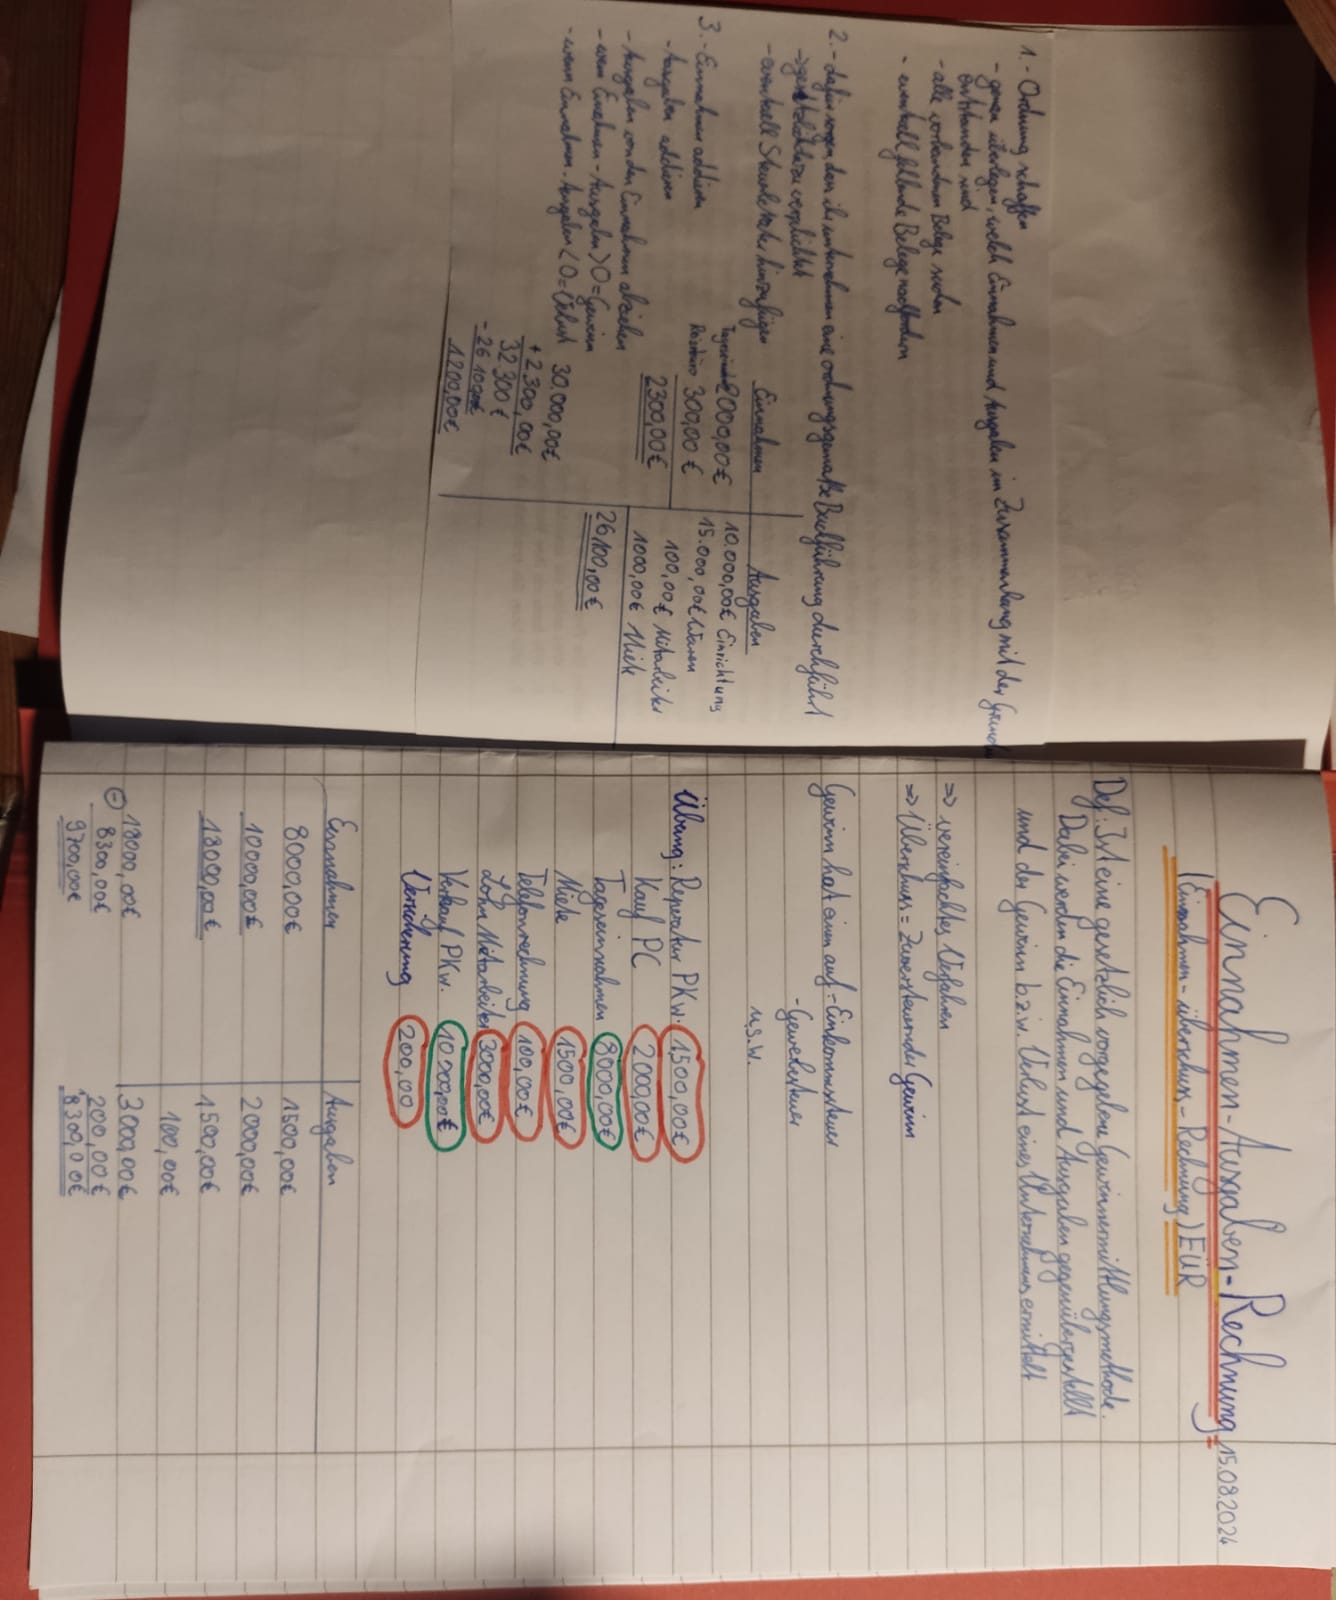 1. - Ordnung schaffen
- genau überlegen, welche Einnahmen und Ausgaben im Zusammenhang mit der
entstanden sind
- alle vorhandenen Belege suchen
- eventuell fehlende Belege nachfordern
2. - dafür sorgen, dass ihr unternehmen eine ordnungsgemäße Buchführung durchführt
verpflichtet
- eventuell Steuerberater hinzufügen
3. - Einnahmen addieren
- Ausgaben addieren
- Ausgaben von den Einnahmen abziehen
- wenn Einnahmen - Ausgaben > 0 = Gewinn
- wenn Einnahmen - Ausgaben < 0 = Verlust
Einnahmen Ausgaben
2000,00€ 10.000,00€ Einrichtung
300,00€ 15.000,00€ Waren
2300,00€ 100,00€ Mitarbeiter
1000,00€ Miete
26100,00€
30.000,00€
+2300,00€
32300€
-26100€
1200,00€
Einnahmen-Ausgaben-Rechnung 15.08.2024
(Einnahmen-überschuss-Rechnung) EÜR
Def.: Ist eine gesetzlich vorgegebene Gewinnermittlungsmethode.
Dabei werden die Einnahmen und Ausgaben gegenübergestellt
und der Gewinn b.z.w. Verlust eines Unternehmens ermittelt
=> vereinfachtes Verfahren
=> Überschuss = Zuversteuernder Gewinn
Gewinn hat einen auf - Einkommensteuer
- Gewerbesteuer
u.s.w.
Übung: Reparatur PKw. 1500,00€
Kauf PC 2000,00€
Tageseinnahmen 8000,00€
Miete 1500,00€
Telefonrechnung 100,00€
Lohn Mitarbeiter 3000,00€
Verkauf PKw. 10000,00€
Versicherung 200,00
Einnahmen Ausgaben
8000,00€ 1500,00€
10000,00€ 2000,00€
18000,00€ 1500,00€
100,00€
18000,00€ 3000,00€
- 8300,00€ 200,00€
9700,00€ 8300,00€